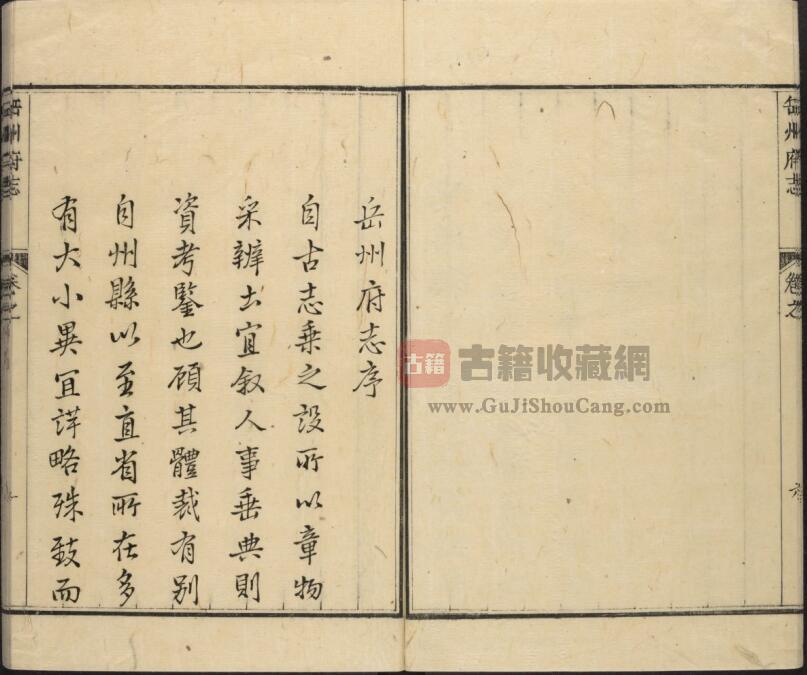 岳州府志
岳州府志序
自古志乗之設所以章物
采辨土宜叙人事垂典則
資考鑒也顧其體裁有别
自州縣以至直省所在多
有大小異宜詳略殊致而
岳州府志
卷之
古籍
古籍收藏網
www.GuJiShouCang.com